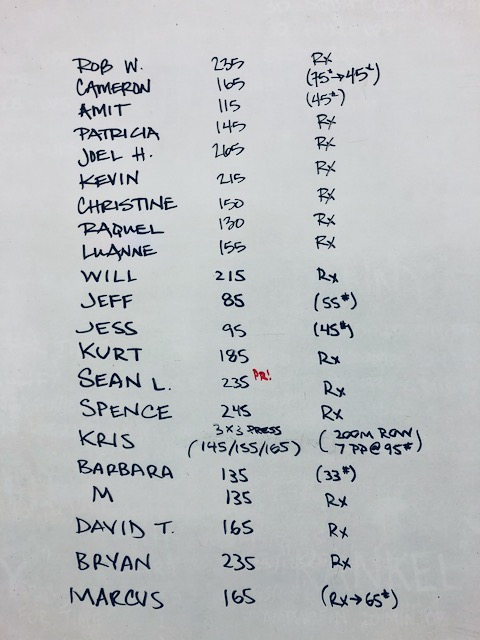 ROB W. 235 Rx
CAMERON 165 (75#→45#)
AMIT 115 (45#)
PATRICIA 145 Rx
JOEL H. 265 Rx
KEVIN 215 Rx
CHRISTINE 150 Rx
RAQUEL 130 Rx
LUANNE 155 Rx
WILL 215 Rx
JEFF 85 (55#)
JESS 95 (45#)
KURT 185 Rx
SEAN L. 235 PR! Rx
SPENCE 245 Rx
KRIS 3x3 PRESS (145/155/165) (200M ROW 7 PP@95#)
BARBARA 135 (33#)
M 135 Rx
DAVID T. 165 Rx
BRYAN 235 Rx
MARCUS 165 (Rx→65#)